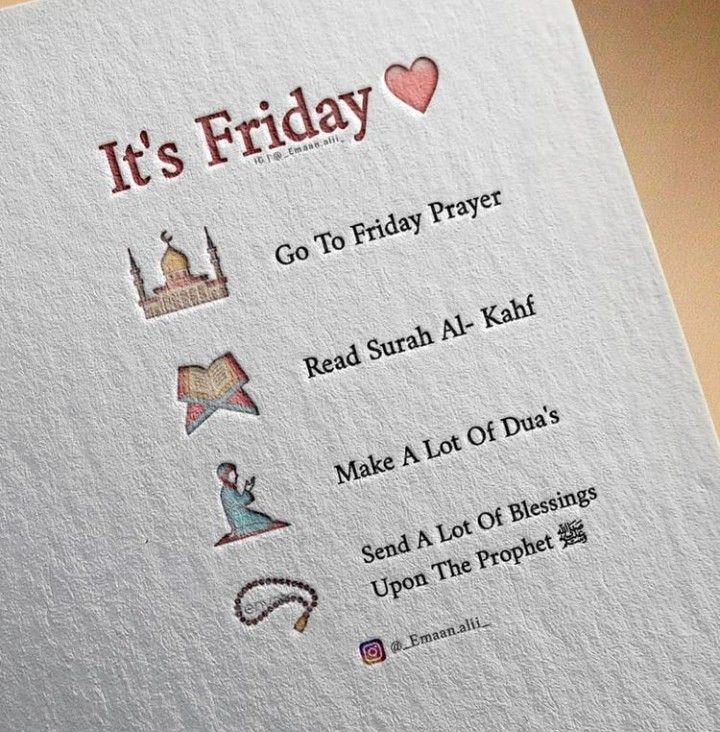 It's Friday ❤
IG | @_Emaan.alii_
Go To Friday Prayer
Read Surah Al- Kahf
Make A Lot Of Dua's
Send A Lot Of Blessings
Upon The Prophet ﷺ
@_Emaan.alii_